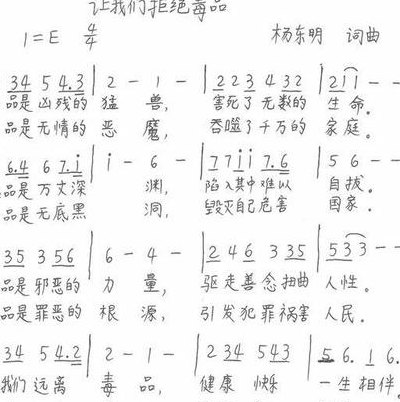 让我们拒绝毒品
1=E 4/4 杨东明 词曲
34 5 4.3 | 2 - 1 - | 2 2 3 4 32 | 2 1 1 - -
品是 凶残的 猛 兽, 害死了 无数的 生 命。
品是 无情的 恶 魔, 吞噬了 千万的 家 庭。
6.4 6 7.i | i - 6 - | 7 7 i i 7.6 | 5 6 - -
品是 万丈深 渊, 陷入其中难以 自拔。
品是 无底黑 洞, 毁灭自己危害 国家.
35 3 56 | 6 - 4 - | 2 4 6 3 35 | 5 3 3 - -
品是 邪恶的 力 量, 驱走善念扭曲 人性。
品是 罪恶的 根 源, 引发犯罪祸害 人民.
34 5 4.2 | 2 - 1 - | 2 34 543 | 5 6. 1 6.
我们 远离 毒 品, 健康 快乐 一生相伴